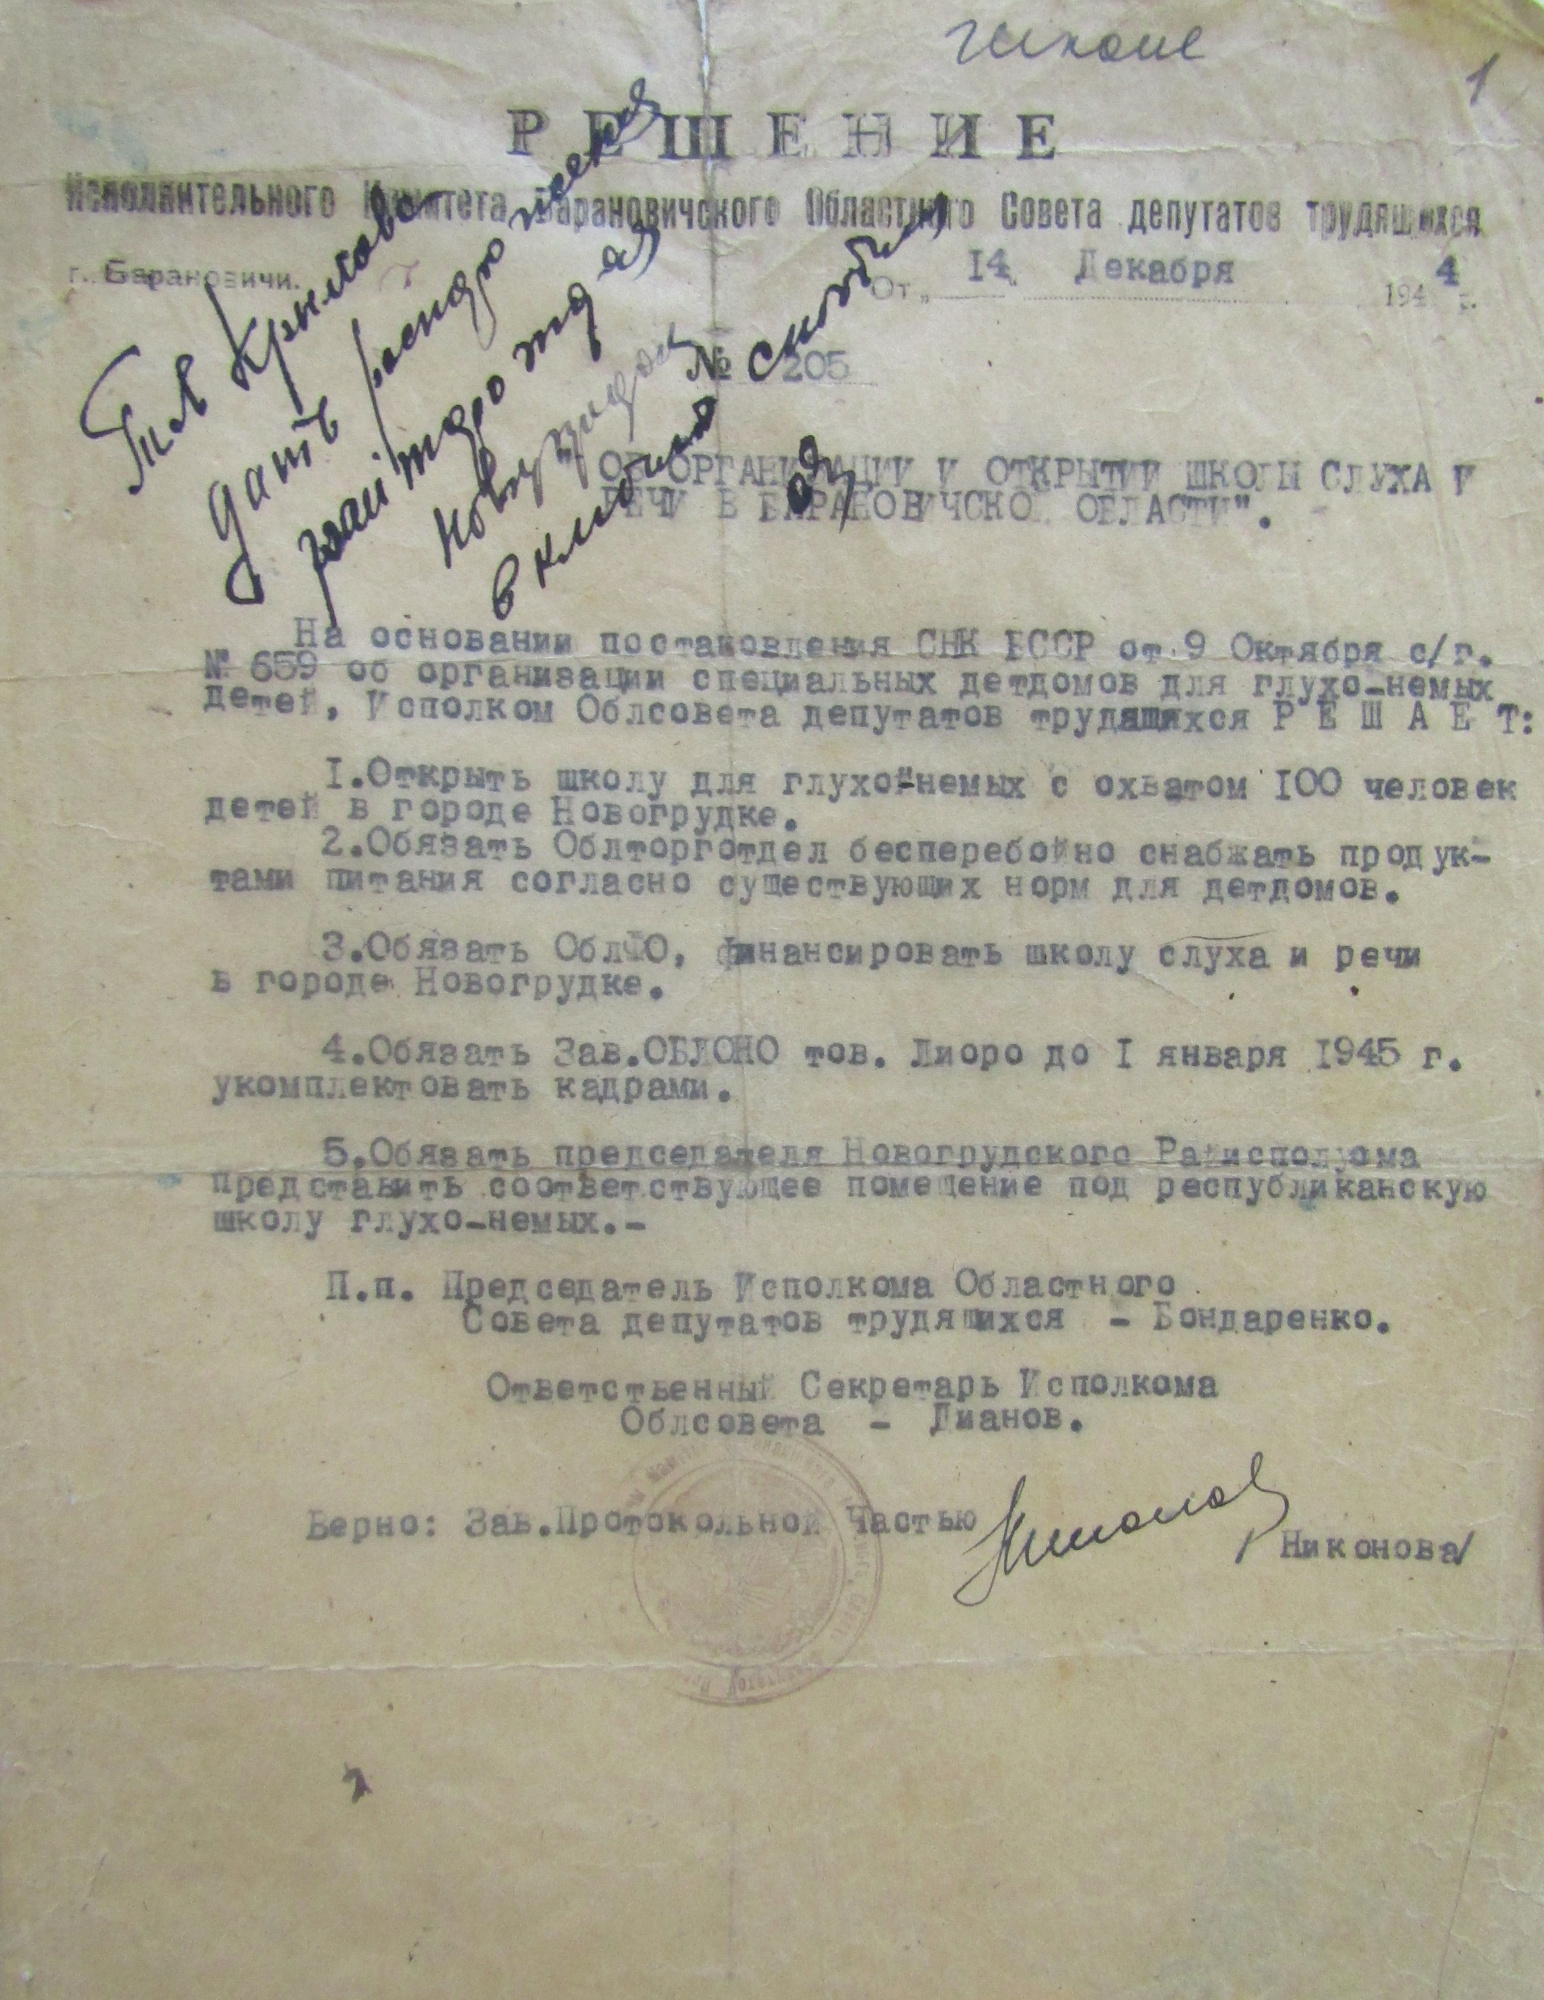 1
РЕШЕНИЕ
Исполнительного Комитета Барановичского Областного Совета депутатов трудящихся
г. Барановичи.
От „ 14 " Декабря 1944 г.
№ 205
"ОБ ОРГАНИЗАЦИИ И ОТКРЫТИИ ШКОЛЫ СЛУХА И
РЕЧИ В БАРАНОВИЧСКОЙ ОБЛАСТИ".
Тов Крылова
дать распоряжение
райторготд
включить
На основании постановления СНК БССР от 9 Октября с/г.
№ 659 об организации специальных детдомов для глухо-немых
детей, Исполком Облсовета депутатов трудящихся Р Е Ш А Е Т:
1.Открыть школу для глухо-немых с охватом 100 человек
детей в городе Новогрудке.
2.Обязать Облторготдел бесперебойно снабжать продук-
тами питания согласно существующих норм для детдомов.
3.Обязать ОблФО, финансировать школу слуха и речи
в городе Новогрудке.
4.Обязать Зав.ОБЛОНО тов. Лиоро до 1 января 1945 г.
укомплектовать кадрами.
5.Обязать председателя Новогрудского Райисполкома
представить соответствующее помещение под республиканскую
школу глухо-немых.-
П.п. Председатель Исполкома Областного
Совета депутатов трудящихся - Бондаренко.
Ответственный Секретарь Исполкома
Облсовета - Лианов.
Верно: Зав.Протокольной Частью
/Никонова/